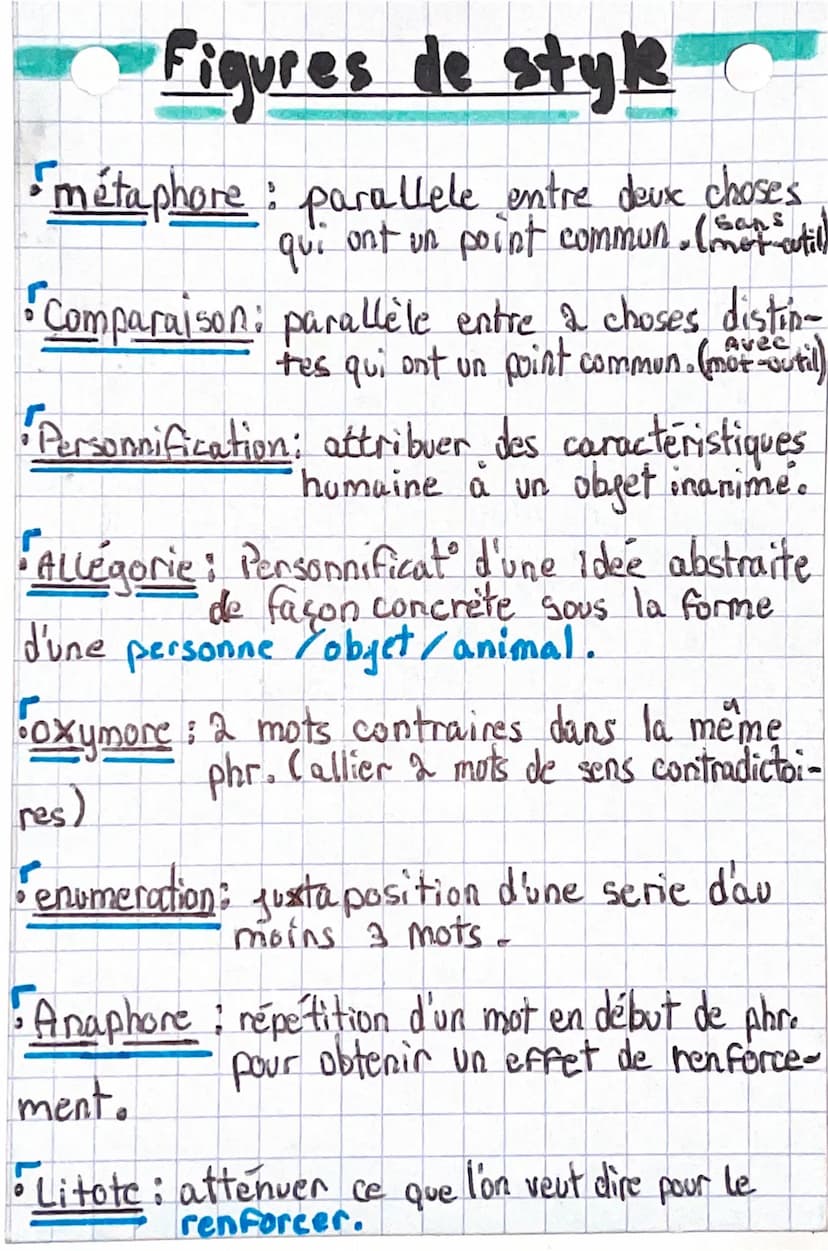 Figures de style
• métaphore : parallele entre deux choses
qui ont un point commun. (sans mot-outil)
• Comparaison : parallèle entre 2 choses distin-
tes qui ont un point commun. (avec mot-outil)
• Personnification : attribuer des caractéristiques
humaine à un objet inanimé.
• Allégorie : Personnificat° d'une idée abstraite
de façon concrète sous la forme
d'une personne / objet / animal.
• oxymore : 2 mots contraires dans la même
phr. (allier 2 mots de sens contradictoi-
res)
• enumeration : juxtaposition d'une serie d'au
moins 3 mots.
• Anaphore : répétition d'un mot en début de phr.
pour obtenir un effet de renforce-
ment.
• Litote : atténuer ce que l'on veut dire pour le
renforcer.